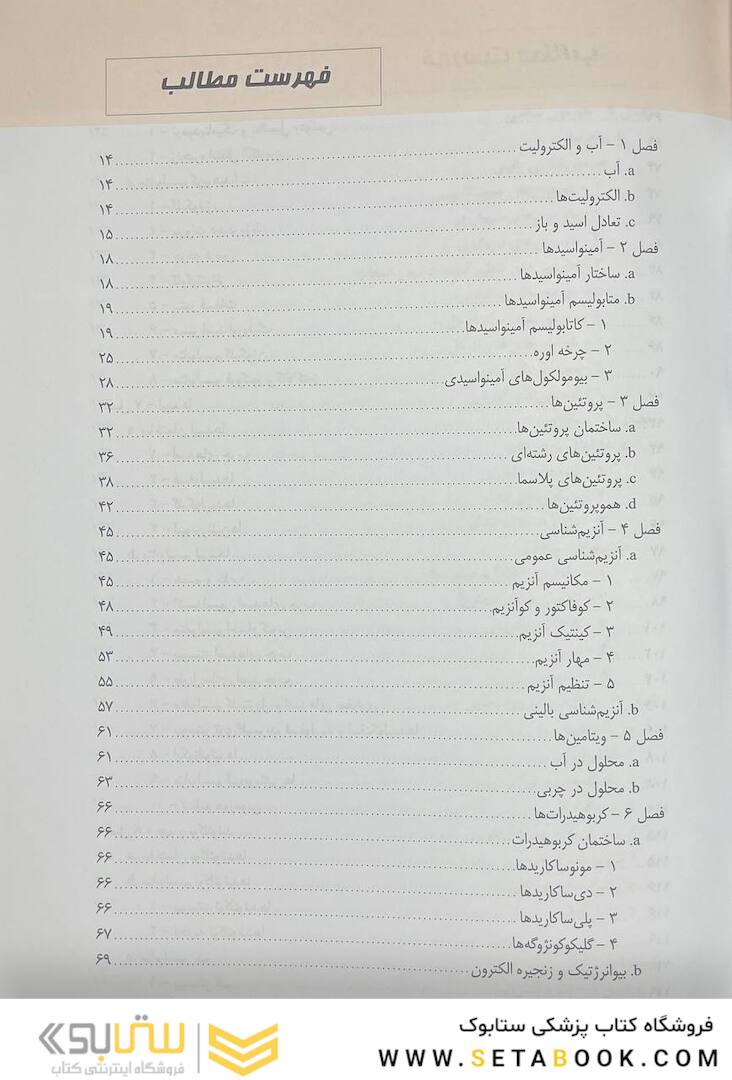 فهرست مطالب
فصل ۱ - آب و الکترولیت ........ ۱۴
a. آب ........ ۱۴
b. الکترولیت‌ها ........ ۱۴
c. تعادل اسید و باز ........ ۱۵
فصل ۲ - آمینواسیدها ........ ۱۸
a. ساختار آمینواسیدها ........ ۱۸
b. متابولیسم آمینواسیدها ........ ۱۹
۱ - کاتابولیسم آمینواسیدها ........ ۱۹
۲ - چرخه اوره ........ ۲۵
۳ - بیومولکول‌های آمینواسیدی ........ ۲۸
فصل ۳ - پروتئین‌ها ........ ۳۲
a. ساختمان پروتئین‌ها ........ ۳۲
b. پروتئین‌های رشته‌ای ........ ۳۶
c. پروتئین‌های پلاسما ........ ۳۸
d. هموپروتئین‌ها ........ ۴۲
فصل ۴ - آنزیم‌شناسی ........ ۴۵
a. آنزیم‌شناسی عمومی ........ ۴۵
۱ - مکانیسم آنزیم ........ ۴۵
۲ - کوفاکتور و کوآنزیم ........ ۴۸
۳ - کینتیک آنزیم ........ ۴۹
۴ - مهار آنزیم ........ ۵۳
۵ - تنظیم آنزیم ........ ۵۵
b. آنزیم‌شناسی بالینی ........ ۵۷
فصل ۵ - ویتامین‌ها ........ ۶۱
a. محلول در آب ........ ۶۱
b. محلول در چربی ........ ۶۳
فصل ۶ - کربوهیدرات‌ها ........ ۶۶
a. ساختمان کربوهیدرات ........ ۶۶
۱ - مونوساکاریدها ........ ۶۶
۲ - دی‌ساکاریدها ........ ۶۶
۳ - پلی‌ساکاریدها ........ ۶۶
۴ - گلیکوکونژوگه‌ها ........ ۶۷
b. بیوانرژتیک و زنجیره الکترون ........ ۶۹
فروشگاه کتاب پزشکی ستابوک
WWW.SETABOOK.COM
ستابوک
فروشگاه اینترنتی کتاب